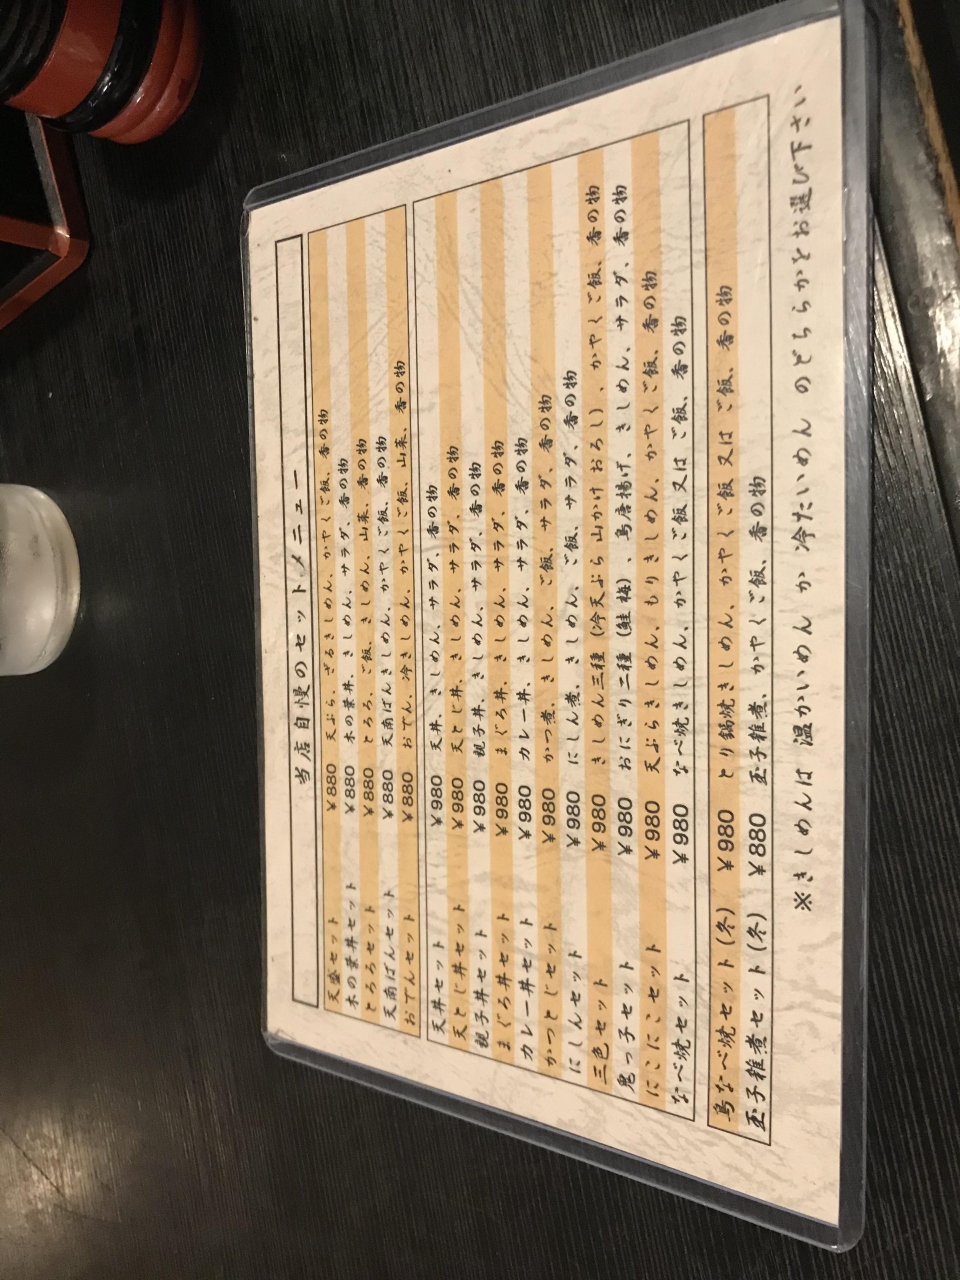 当店自慢のセットメニュー
天盛セット ¥880 天ぷら、ざるきしめん、かやくご飯、香の物
木の葉丼セット ¥880 木の葉丼、きしめん、サラダ、香の物
とろろセット ¥880 とろろ、ご飯、きしめん、山菜、香の物
天南ばんセット ¥880 天南ばんきしめん、かやくご飯、香の物
おでんセット ¥880 おでん、冷きしめん、かやくご飯、山菜、香の物
天丼セット ¥980 天丼、きしめん、サラダ、香の物
天とじ丼セット ¥980 天とじ丼、きしめん、サラダ、香の物
親子丼セット ¥980 親子丼、きしめん、サラダ、香の物
まぐろ丼セット ¥980 まぐろ丼、きしめん、サラダ、香の物
カレー丼セット ¥980 カレー丼、きしめん、サラダ、香の物
かつとじセット ¥980 かつ煮、きしめん、ご飯、サラダ、香の物
にしんセット ¥980 にしん煮、きしめん、ご飯、サラダ、香の物
三色セット ¥980 きしめん三種（冷天ぷら 山かけ おろし）、かやくご飯、香の物
鬼っ子セット ¥980 おにぎり二種（鮭 梅）、鳥唐揚げ、きしめん、サラダ、香の物
にこにこセット ¥980 天ぷらきしめん、もりきしめん、かやくご飯、香の物
なべ焼セット ¥980 なべ焼ききしめん、かやくご飯又はご飯、香の物
鳥なべ焼セット（冬） ¥980 とり鍋焼きしめん、かやくご飯又はご飯、香の物
玉子雑煮セット（冬） ¥880 玉子雑煮、かやくご飯、香の物
※きしめんは 温かいめん か 冷たいめん のどちらかとお選び下さい